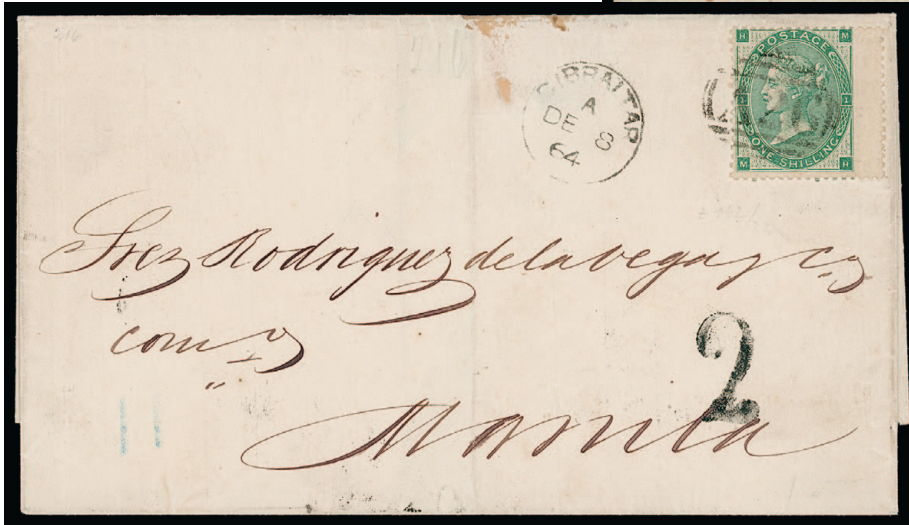 GIBRALTAR
A
DE 8
64
H M
POSTAGE
ONE SHILLING
M H
Srez Rodriguez de la Vega y Ca
com
2
Manila